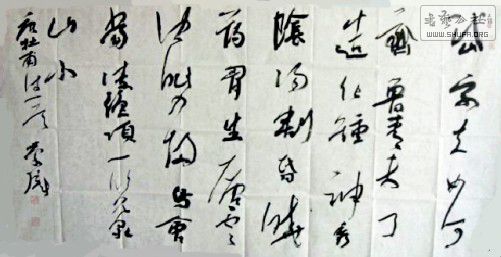 岱宗夫如何
齊魯青未了
造化鍾神秀
陰陽割昏曉
蕩胸生層雲
決眥入歸鳥會
當凌絕頂一覽眾
山小
唐杜甫詩一首
书艺公社
WWW.SHUFA.ORG